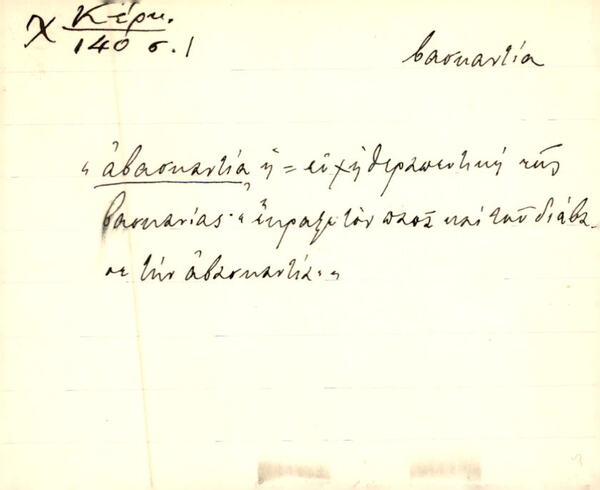 χ Κέρκ.
140 σ. 1
βασκαντία
"ἀβασκαντία, ἡ = εὐχὴ θεραπευτική τῆς
βασκανίας· "ἔκραξε τὸν παπᾶ καί τοῦ διάβα-
σε τὴν ἀβασκαντία."